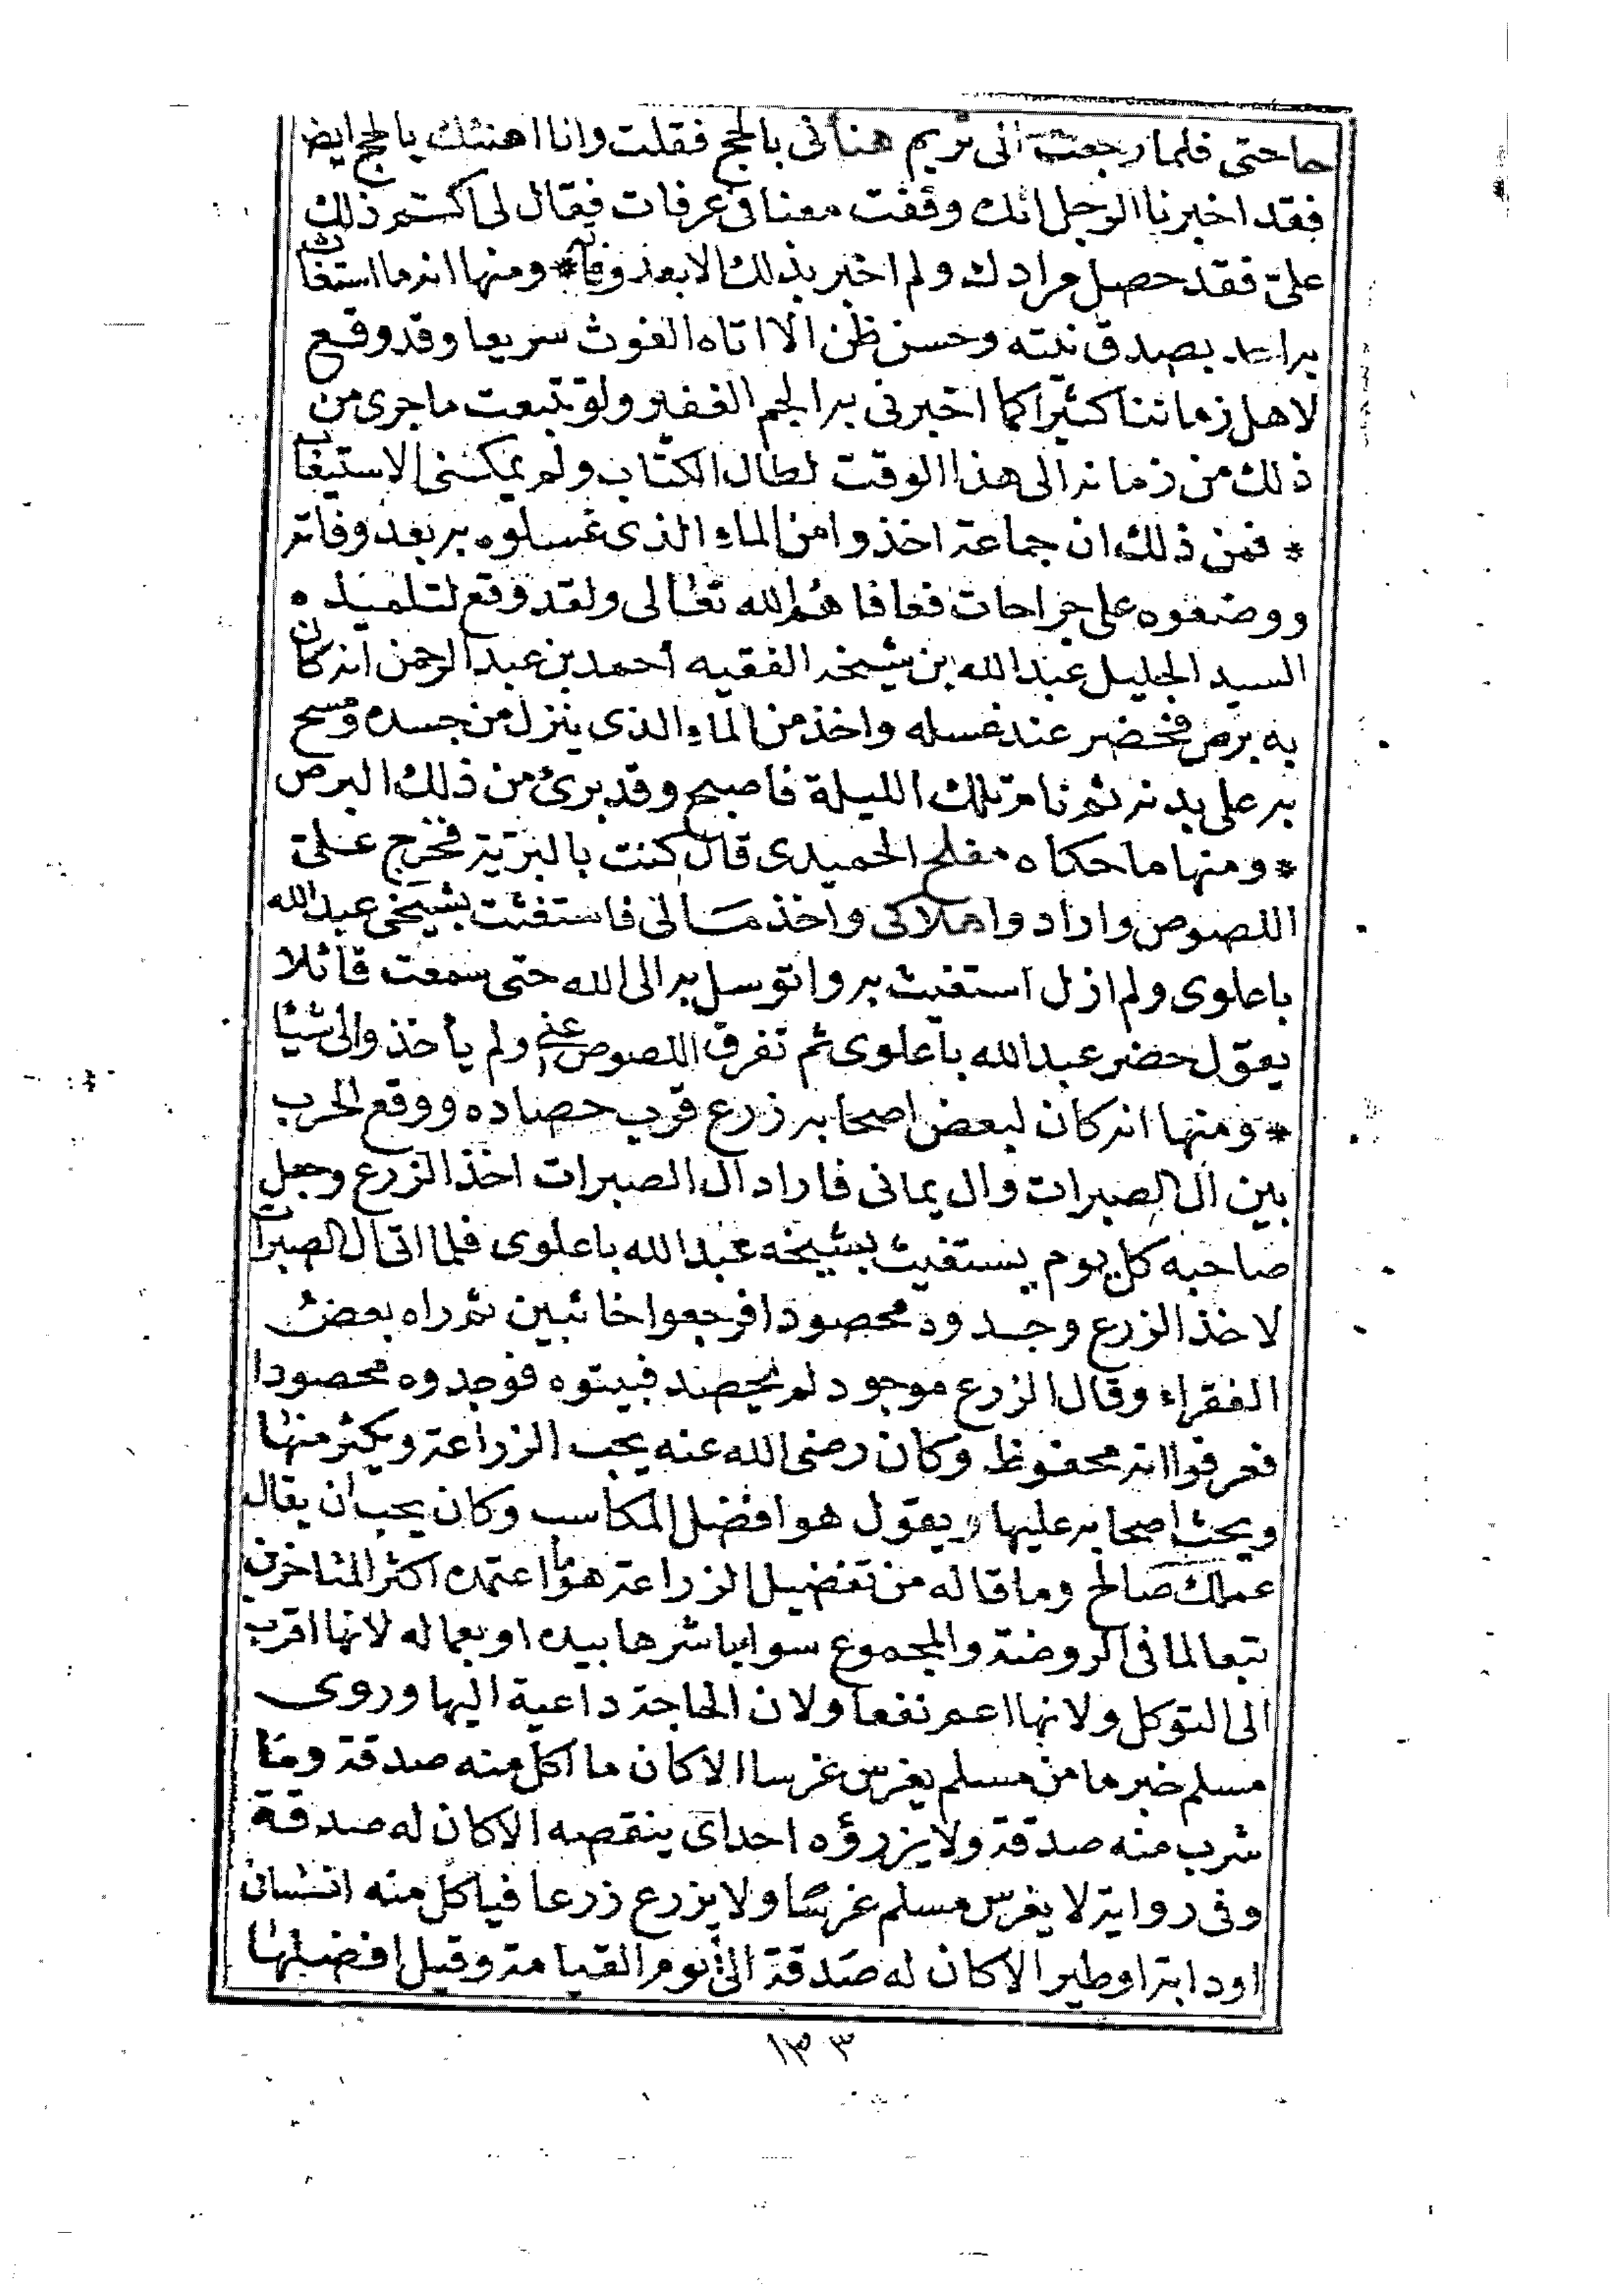 حاحتى فلما رجعت الى تريم هنأنى بالحج فقلت وانا اهنئك بالحج ايضا
فقد اخبرنا الرجل انك وقفت معنا فى عرفات فقال لى اكتم ذلك
علىّ فقد حصل مرادك ولم اخبر بذلك الا بعد وفاته * ومنها انه ما استغاث
به احد بصدق نيته وحسن ظن الا اتاه الغوث سريعا وقد وقع
لاهل زماننا كثيرا كما اخبرنى به الجم الغفير ولو تتبعت ما جرى من
ذلك من زمانه الى هذا الوقت لطال الكتاب ولم يمكننى الاستيعاب
* فمن ذلك ان جماعة اخذوا من الماء الذى غسلوه به بعد وفاته
ووضعوه على جراحات فعافاهم الله تعالى ولقد وقع لتلميذه
السيد الجليل عبد الله بن شيخه الفقيه أحمد بن عبد الرحمن انه كان
به برص فحضر عند غسله واخذ من الماء الذى ينزل من جسده ومسح
به على بدنه ثم نام تلك الليلة فاصبح وقد برئ من ذلك البرص
* ومنها ما حكاه مفلح الحميدى قال كنت بالبرّية فخرج علىّ
اللصوص وارادوا هلاكى واخذ مالى فاستغثت بشيخى عبد الله
باعلوى ولم ازل استغيث به واتوسل به الى الله حتى سمعت قائلا
يقول حضر عبد الله باعلوى ثم تفرق اللصوص عنى ولم يأخذوا لى شيئا
* ومنها انه كان لبعض اصحابه زرع قرب حصاده ووقع الحرب
بين ال الصبرات وال يمانى فاراد ال الصبرات اخذ الزرع وجعل
صاحبه كل يوم يستغيث بشيخه عبد الله باعلوى فلما اتى ال الصبرات
لاخذ الزرع وجدوه محصودا فرجعوا خائبين ثم راه بعض
الفقراء وقال الزرع موجود لم يحصد فبيتوه فوجدوه محصودا
فعرفوا انه محفوظ وكان رضى الله عنه يحب الزراعة ويكثر منها
ويحث اصحابه عليها ويقول هو افضل المكاسب وكان يحب ان يقال
عملك صالح وما قاله من تفضيل الزراعة هو ما اعتمده اكثر المتاخرين
تبعا لما فى الروضة والمجموع سوا باشرها بيده او بعماله لانها اقرب
الى التوكل ولانها اعم نفعا ولان الحاجة داعية اليها وروى
مسلم خبر ما من مسلم يغرس غرسا الا كان ما اكل منه صدقة وما
شرب منه صدقة ولا يزرؤه احد اى ينقصه الا كان له صدقة
وفى رواية لا يغرس مسلم غرسًا ولا يزرع زرعا فياكل منه انسان
او دابة او طير الا كان له صدقة الى يوم القيامة وقيل افضلها
١٣٣